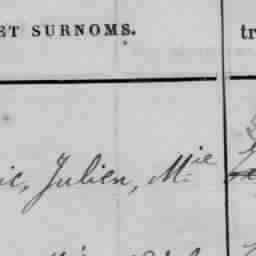 ET SURNOMS. tr
ic, Julien, M.ie